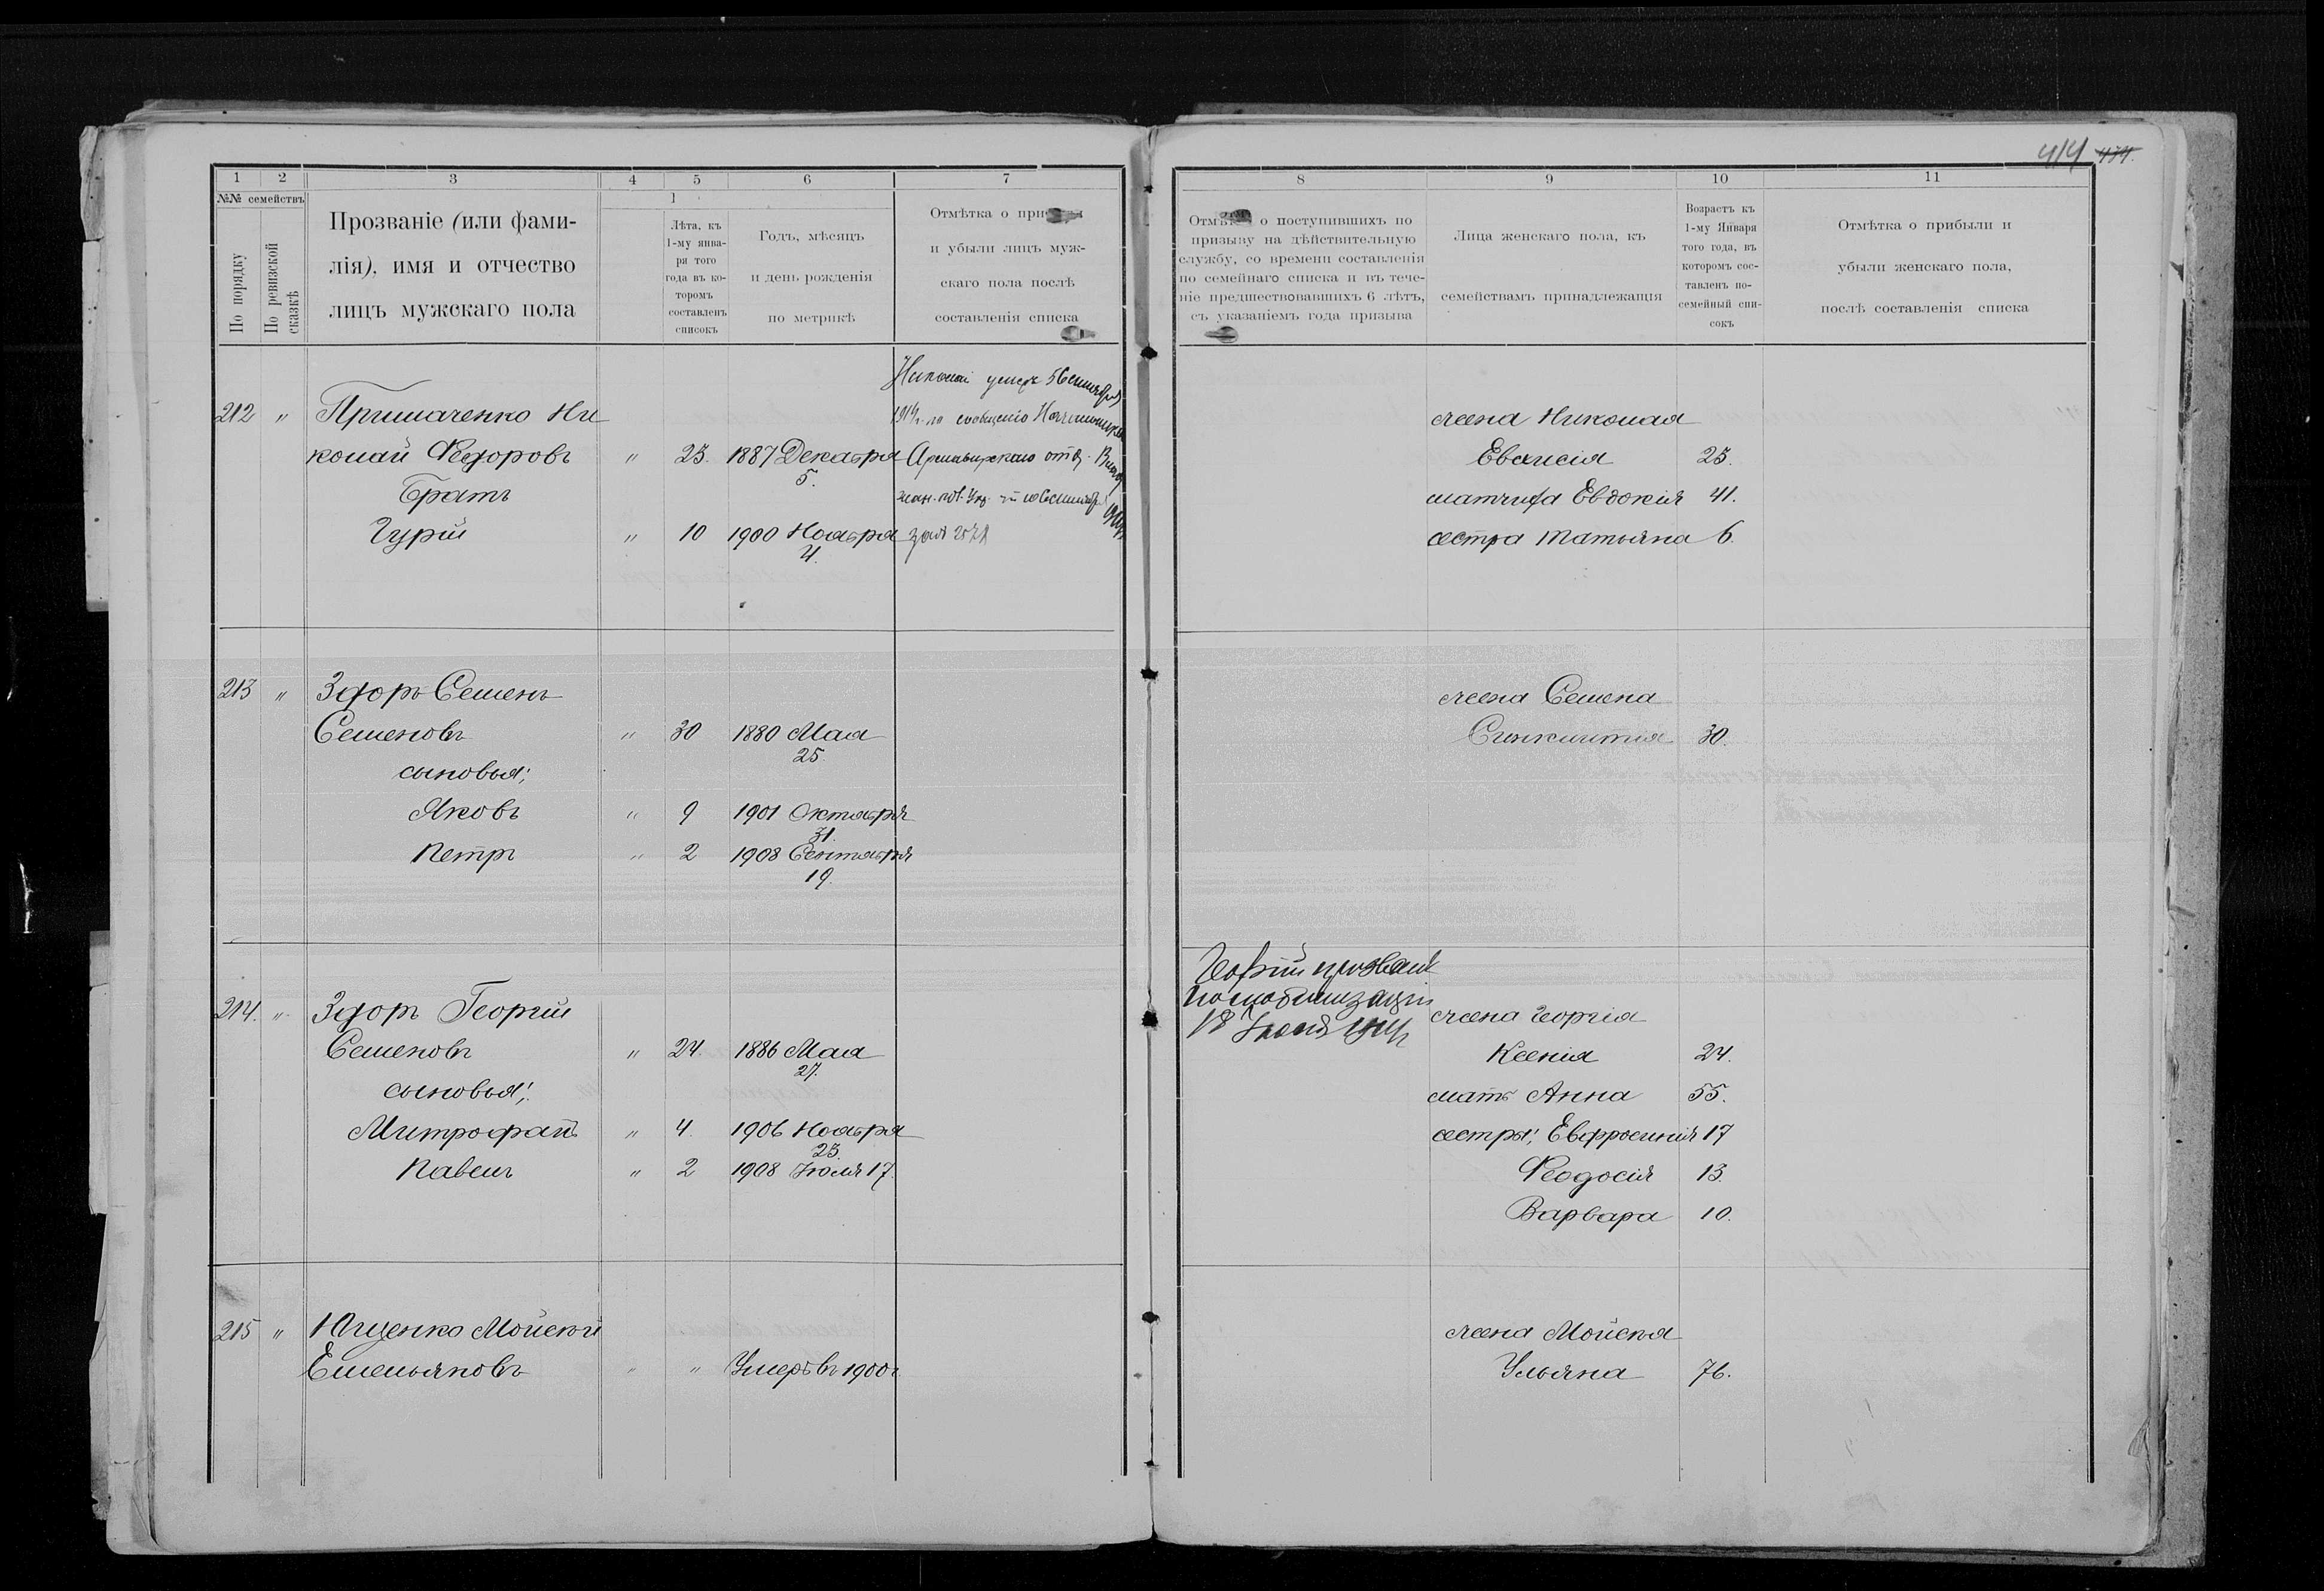 414 474.
1 2 3 4 5 6 7
№№ семействъ
По порядку
По ревизской сказкѣ
Прозваніе (или фами-
лія), имя и отчество
лицъ мужскаго пола
1
Лѣта, къ
1-му янва-
ря того
года въ ко-
торомъ
составленъ
списокъ
Годъ, мѣсяцъ
и день рожденія
по метрикѣ
Отмѣтка о
и убыли лицъ муж-
скаго пола послѣ
составленія списка
212 " Примаченко Ни
колай Ѳедоровъ " 23. 1887 Декабря
5.
Братъ
Гурій " 10 1900 Ноября
4.
Николай умеръ 5 Сентября
по сообщенію Начальника
Армавирскаго отд.
213 " Здоръ Семенъ
Семеновъ " 30 1880 Мая
25
сыновья;
Яковъ " 9 1901 Октября
31.
Петръ " 2 1908 Сентября
19.
214. " Здоръ Георгій
Семеновъ " 24. 1886 Мая
27.
сыновья;
Митрофанъ " 4. 1906 Ноября
23.
Павелъ " 2 1908 Іюля 17.
215 " Ющенко Мойсей
Емельяновъ " " Умеръ въ 1900 г.
8 9 10 11
Отмѣтка о поступившихъ по
призыву на дѣйствительную
службу, со времени составленія
по семейнаго списка и въ тече-
ніе предшествовавшихъ 6 лѣтъ,
съ указаніемъ года призыва
Лица женскаго пола, къ
семействамъ принадлежащія
Возрастъ къ
1-му Января
того года, въ
которомъ сос-
тавленъ по-
семейный спи-
сокъ
Отмѣтка о прибыли и
убыли женскаго пола,
послѣ составленія списка
жена Николая
23.
мачиха Евдокія 41.
сестра Татьяна 6.
жена Семена
Синклитія 30.
Георгій призванъ
по мобилизаціи
18 Іюля 1914 г.
жена Георгія
Ксенія 24.
мать Анна 55.
сестры; Евфросинія 17
Ѳеодосія 13.
Варвара 10.
жена Мойсея
Ульяна 76.